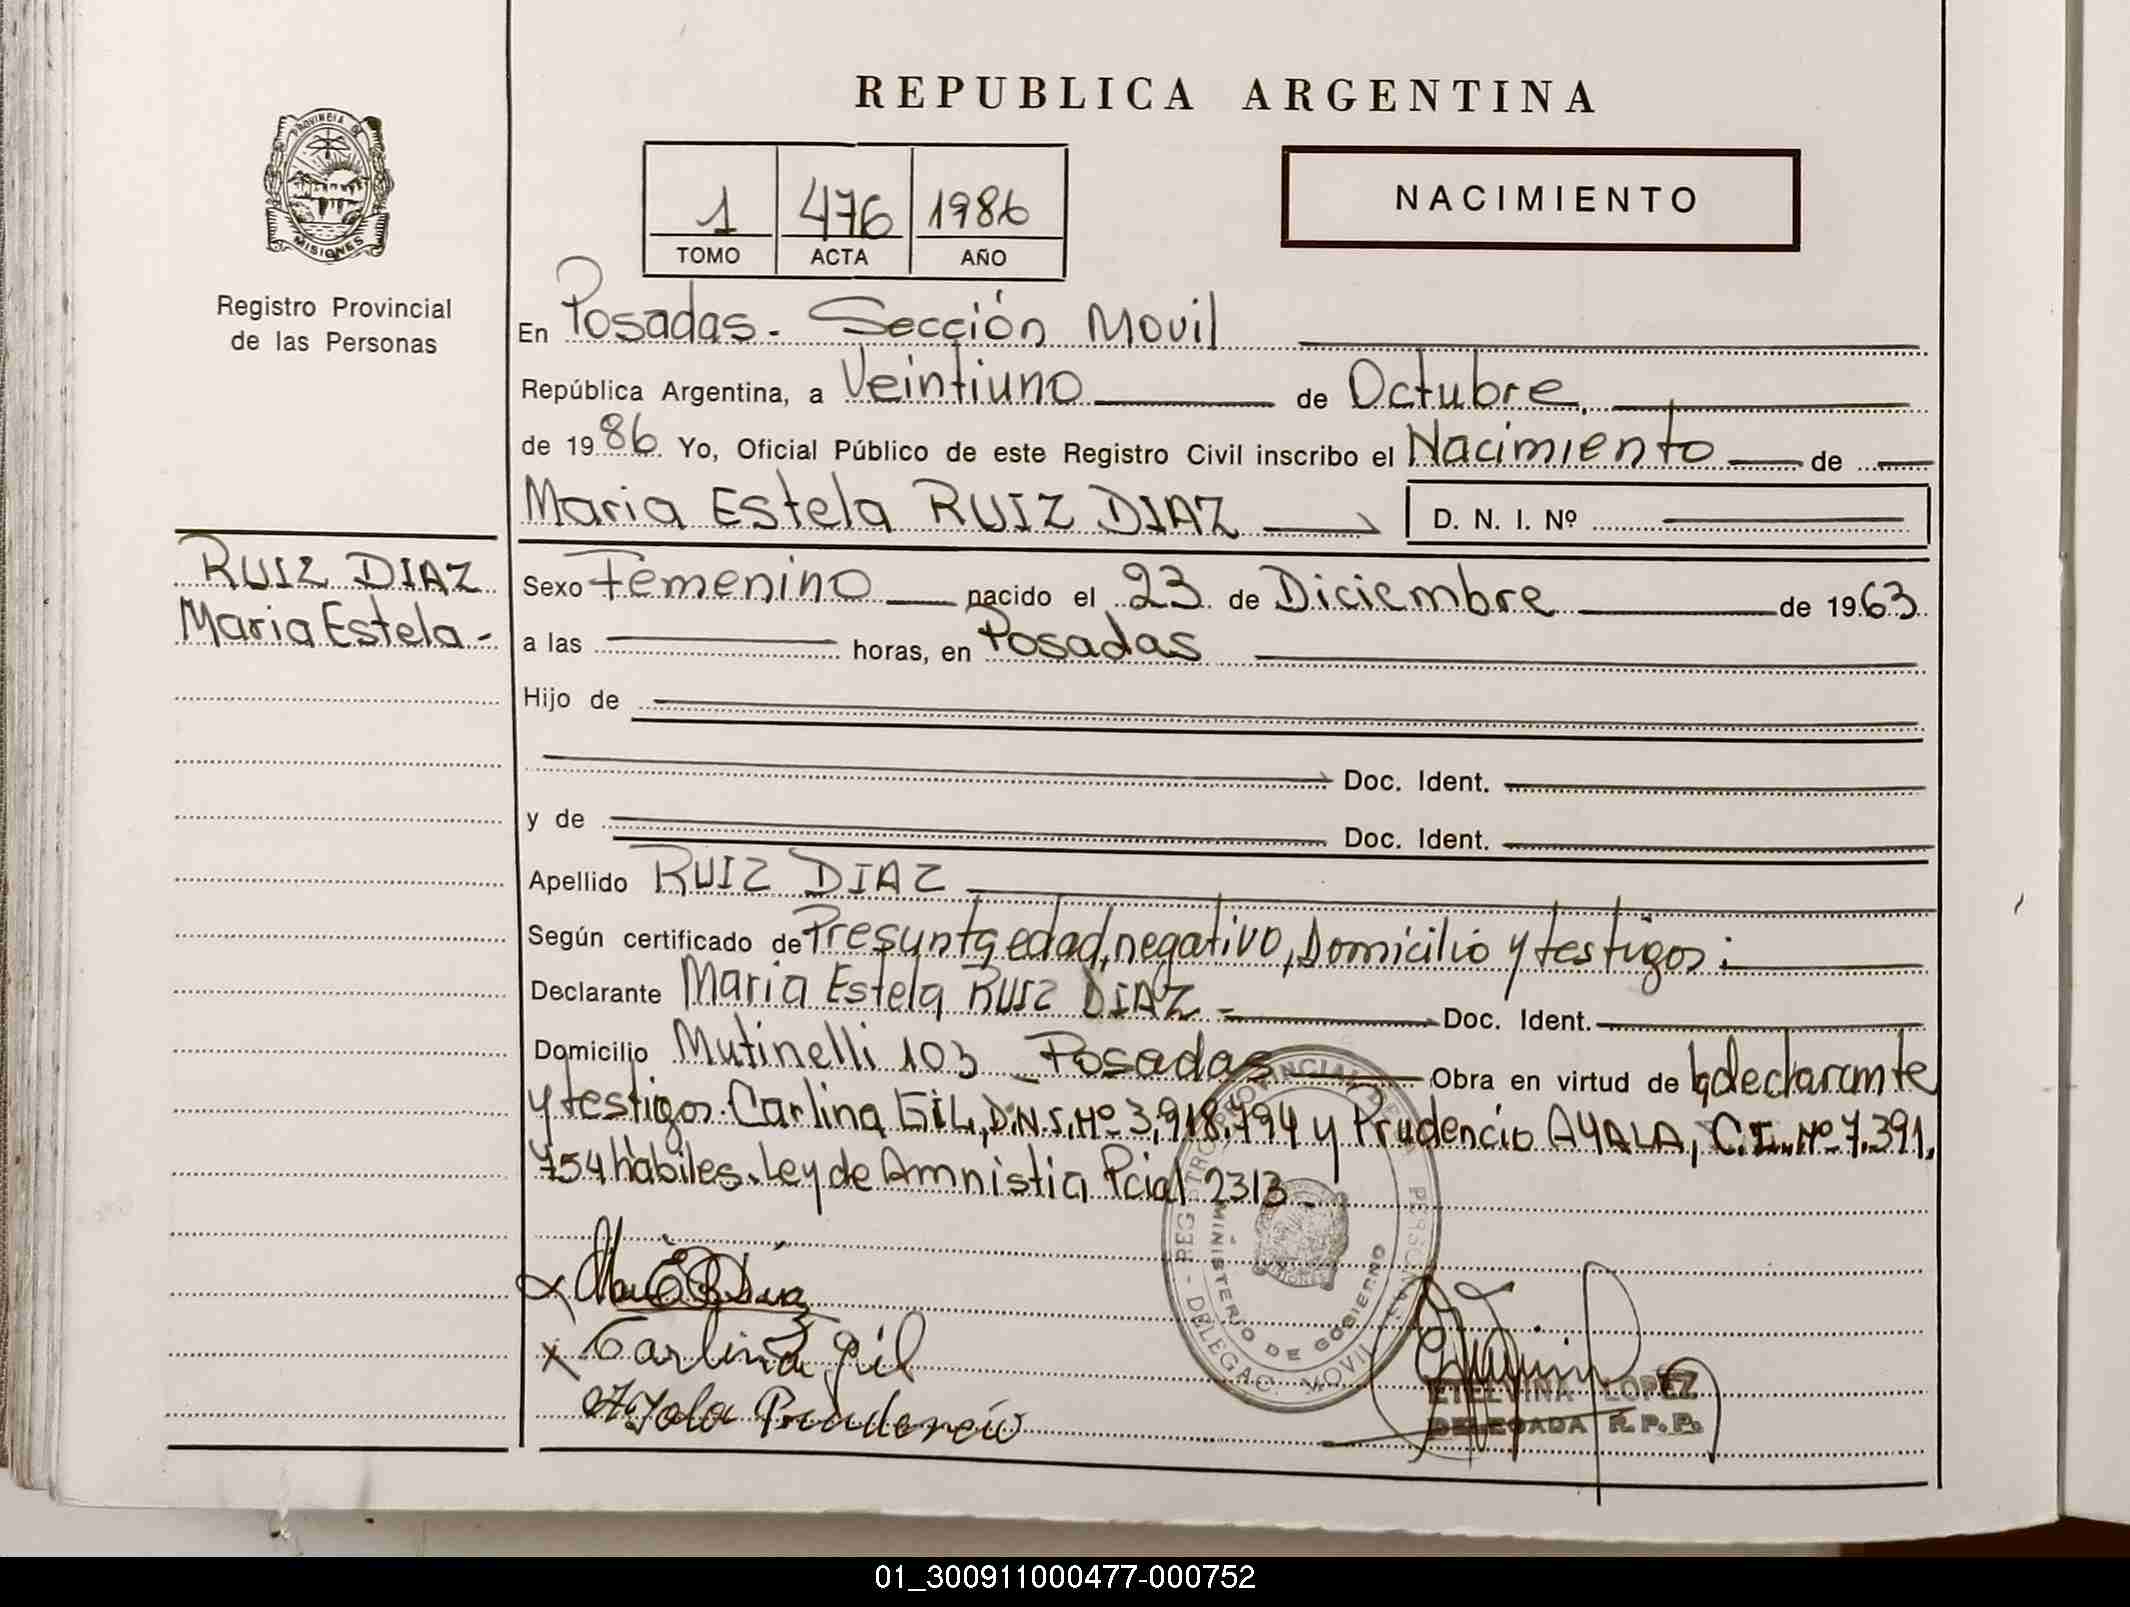 REPUBLICA ARGENTINA
PROVINCIA DE
MISIONES
Registro Provincial
de las Personas
1 476 1986
TOMO ACTA AÑO
NACIMIENTO
En Posadas - Sección Movil
República Argentina, a Veintiuno de Octubre
de 1986 Yo, Oficial Público de este Registro Civil inscribo el Nacimiento de
Maria Estela RUIZ DIAZ D. N. I. Nº
RUIZ DIAZ
Maria Estela -
Sexo Femenino nacido el 23 de Diciembre de 1963
a las horas, en Posadas
Hijo de
Doc. Ident.
y de Doc. Ident.
Apellido RUIZ DIAZ
Según certificado de Presunta edad, negativo, Domicilio y testigos:
Declarante Maria Estela RUIZ DIAZ - Doc. Ident.
Domicilio Mutinelli 103 - Posadas Obra en virtud de la declarante
y testigos. Carlina GIL, D.N.I. Nº 3.918.794 y Prudencio AYALA, C.I. Nº 7.391.
754 habiles. Ley de Amnistia Pcial 2313 -
REGISTRO PROVINCIAL DE LAS PERSONAS - DELEGAC. MOVIL
MINISTERIO DE GOBIERNO
x
x Carlina gil
Ayala Prudencio
ETELVINA LOPEZ
DELEGADA R.P.P.
01_300911000477-000752